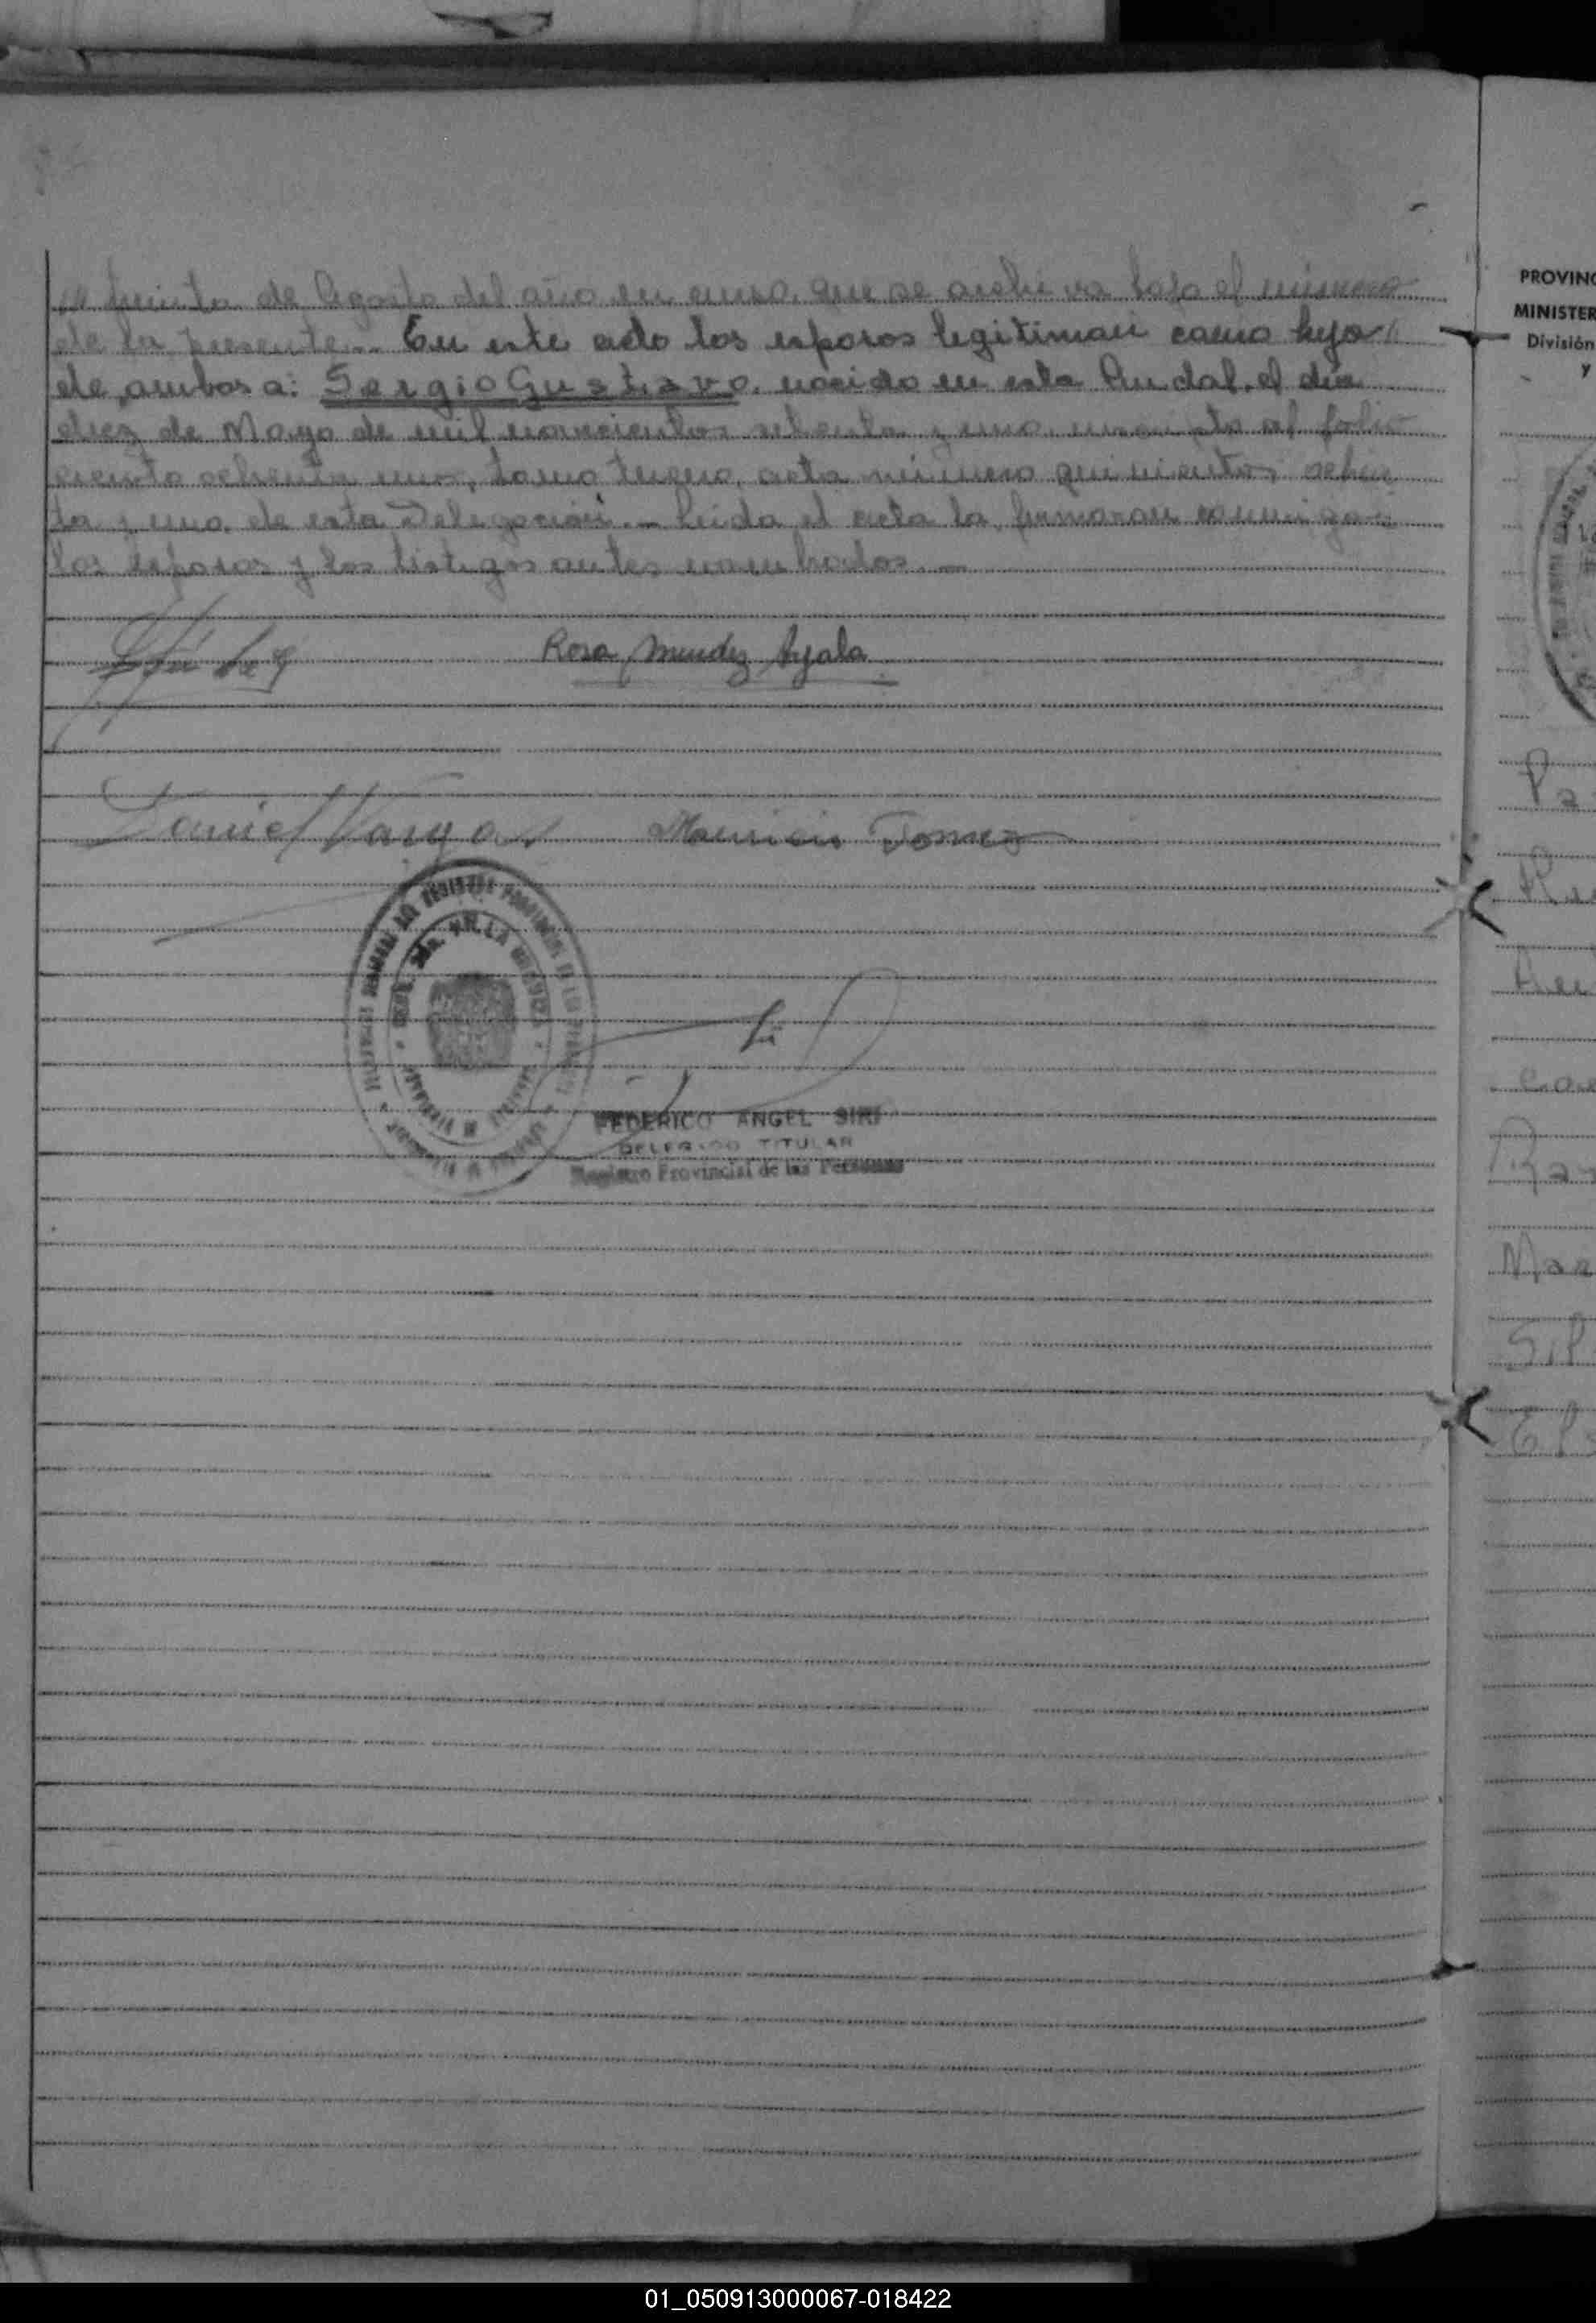 treinta de Agosto del año en curso, que se archiva bajo el número
de la presente.- En este acto los esposos legitiman como hijo
de ambos a: Sergio Gustavo, nacido en esta Ciudad, el día
diez de Mayo de mil novecientos setenta y uno, inscripto al folio
ciento ochenta uno, tomo tercero, acta número quinientos seten
ta y uno, de esta Delegación.- Leida el acta la firmaron conmigo
los esposos y los testigos antes nombrados.-
Rosa Mendez Ayala
Daniel Vargas Mauricio Gomez
FEDERICO ANGEL SIRI
DELEGADO TITULAR
Registro Provincial de las Personas
PROVINC
MINISTER
División
y
01_050913000067-018422